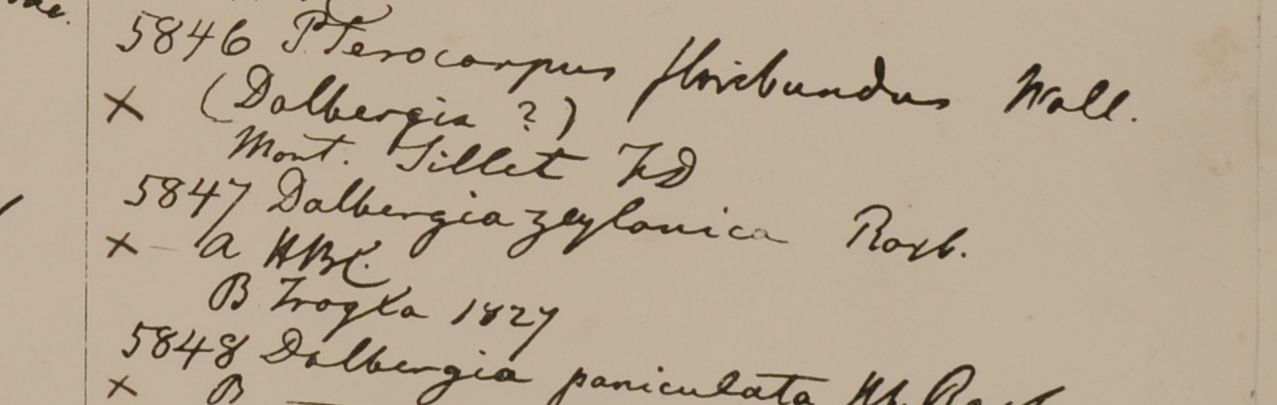 5846 Pterocarpus floribundus Wall.
x (Dalbergia ?)
Mont. Sillet FD
5847 Dalbergia zeylanica Roxb.
x – a HBC.
B Trogla 1827
5848 Dalbergia paniculata Hb. Roxb
x B